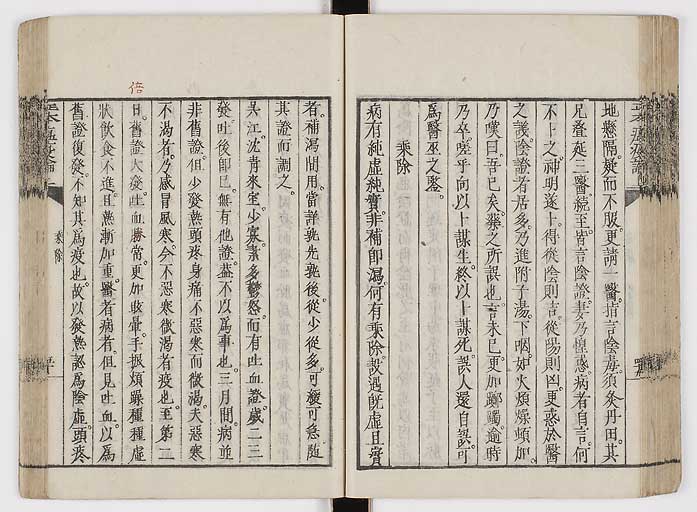 地懸隔疑而不服更請一醫指言陰毒須灸丹田其
兄疊延三醫續至皆言陰證妻乃惶惑病者自言何
不卜之神明遂卜得從陰則吉從陽則凶更惑於醫
之議陰證者居多乃進附子湯下咽如火煩燥頓加
乃嘆曰吾已矣藥之所誤也言未已更加躑躅逾時
乃卒嗟乎向以卜謀生終以卜謀死誤人還自誤可
爲醫巫之鑒
乘除
病有純虛純實非補即瀉何有乘除設遇既虛且實
者補瀉間用當詳孰先孰後從少從多可緩可急隨
其證而調之
吳江沈青來室少寡素多鬱怒而有吐血證歲三三
發吐後即已無有他證蓋不以爲事也三月間病並
非舊證但少發熱頭疼身痛不惡寒而微渴夫惡寒
不渴者乃感冒風寒今不惡寒微渴者疫也至第二
日舊證大發吐血勝常更加眩暈手振煩躁種種虛
狀飲食不進且熱漸加重醫者病者但見吐血以爲
舊證復發不知其爲疫也故以發熱認爲陰虛頭疼
倍
乘除